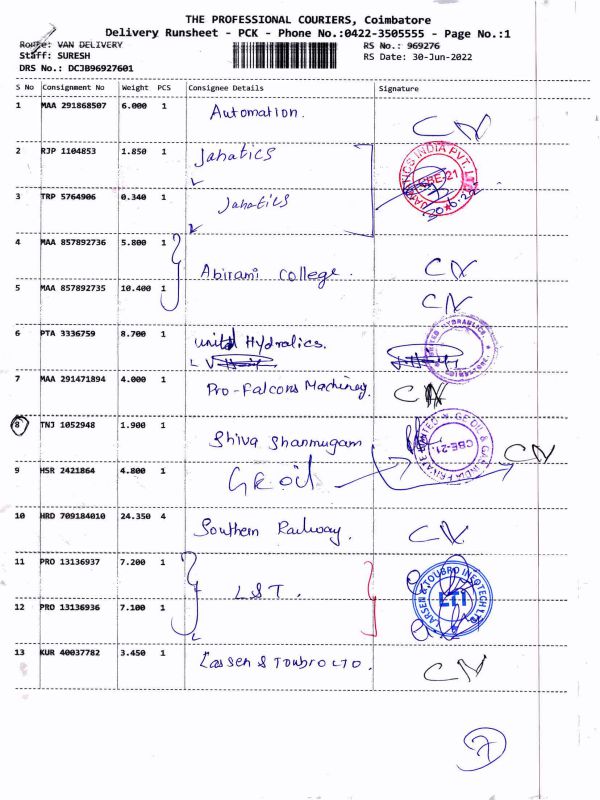 THE PROFESSIONAL COURIERS, Coimbatore
Delivery Runsheet - PCK - Phone No.:0422-3505555 - Page No.:1
Route: VAN DELIVERY
RS No.: 969276
Staff: SURESH
RS Date: 30-Jun-2022
DRS No.: DCJB96927601
S No Consignment No Weight PCS Consignee Details Signature
1 MAA 291868507 6.000 1 Automation. CN
2 RJP 1104853 1.850 1 Jahatics
3 TRP 5764906 0.340 1 Jahatics
CBE-21
30.6.22
4 MAA 857892736 5.800 1 Abirami College. CN
5 MAA 857892735 10.400 1 CN
6 PTA 3336759 8.700 1 united Hydralics.
UNITED HYDRAULICS
7 MAA 291471894 4.000 1 Pro-Falcons Machinery. CN
8 TNJ 1052948 1.900 1 Shiva Shanmugam CN
GE OIL & GAS INDIA PRIVATE LIMITED
CBE-21.
9 HSR 2421864 4.800 1 GE oil
10 HRD 709184010 24.350 4 Southern Railway. CN
11 PRO 13136937 7.200 1 L&T.
12 PRO 13136936 7.100 1
LARSEN & TOUBRO INFOTECH LTD
LTI
13 KUR 40037782 3.450 1 Lassen & Toubro LTD. CN
7